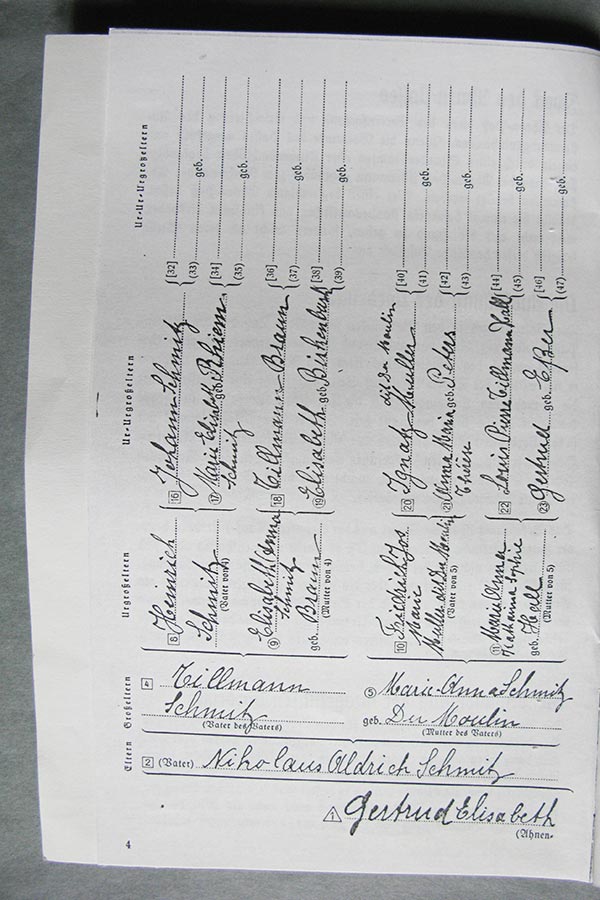 Ur-Ur-Urgroßeltern
[32]
(33) geb.
[34]
(35) geb.
[36]
(37) geb.
[38]
(39) geb.
[40]
(41) geb.
[42]
(43) geb.
[44]
(45) geb.
[46]
(47) geb.
Ur-Urgroßeltern
16 Johann Schmitz
17 Marie Elisabeth geb. Rhiem
Schmitz
18 Tillmann Braun
19 Elisabeth geb. Birkenbusch
auf der Moulin
20 Ignatz Muller
21 Anna Maria geb. Peters
Thérèse
22 Louis Pierre Tillmann Hall
23 Gertrud geb. Eßer
Urgroßeltern
8 Heinrich
Schmitz
(Vater von 4)
9 Elisabeth Anna
Schmitz
geb. Braun
(Mutter von 4)
10 Friedrich Jos
Marie
Muller auf der Moulin
(Vater von 5)
11 Maria Anna
Katharina Sophie
geb. Hall
(Mutter von 5)
Großeltern
4 Tillmann
Schmitz
(Vater des Vaters)
5 Marie-Anna Schmitz
geb. Du Moulin
(Mutter des Vaters)
Eltern
2 (Vater) Nikolaus Aldrich Schmitz
1 Gertrud Elisabeth
(Ahnen-
4